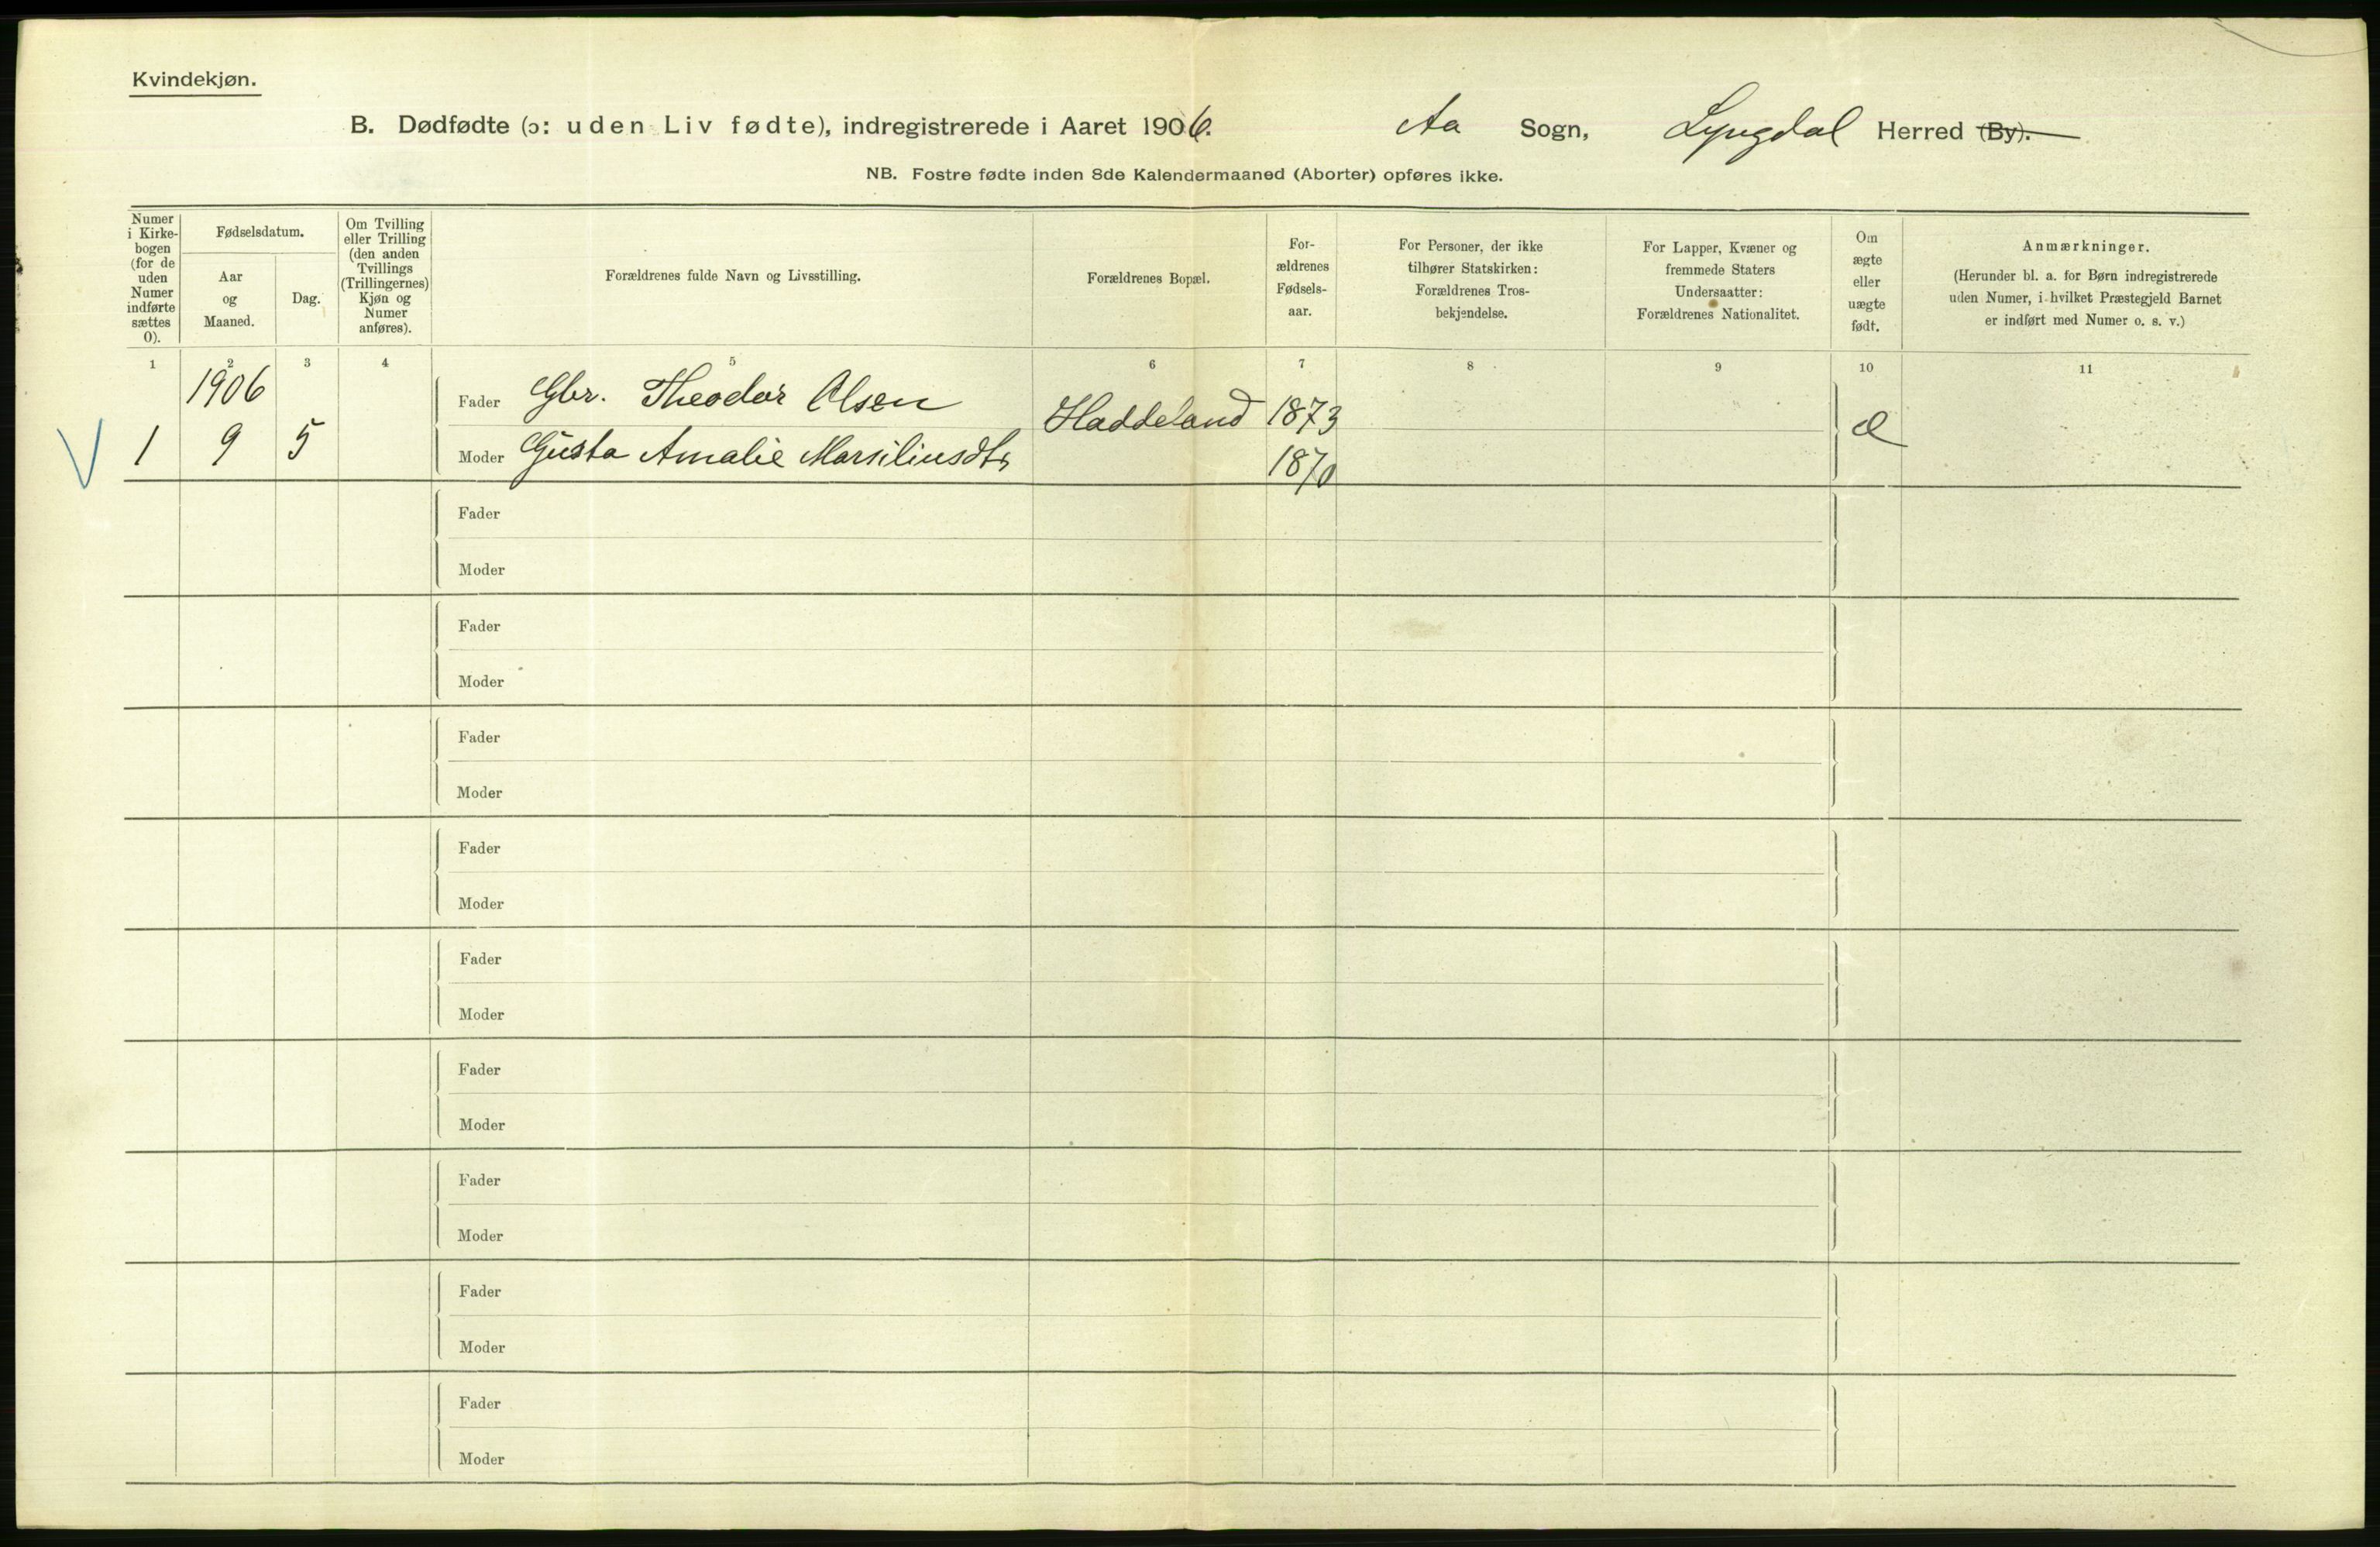 Kvindekjøn.
B. Dødfødte (ɔ: uden Liv fødte), indregistrerede i Aaret 1906. Aa Sogn, Lyngdal Herred (By).
NB. Fostre fødte inden 8de Kalendermaaned (Aborter) opføres ikke.
Numer
i Kirke-
bogen
(for de
uden
Numer
indførte
sættes
0).
Fødselsdatum.
Aar
og
Maaned.
Dag.
Om Tvilling
eller Trilling
(den anden
Tvillings
(Trillingernes)
Kjøn og
Numer
anføres).
Forældrenes fulde Navn og Livsstilling.
Forældrenes Bopæl.
For-
ældrenes
Fødsels-
aar.
For Personer, der ikke
tilhører Statskirken:
Forældrenes Tros-
bekjendelse.
For Lapper, Kvæner og
fremmede Staters
Undersaatter:
Forældrenes Nationalitet.
Om
ægte
eller
uægte
født.
Anmærkninger.
(Herunder bl. a. for Børn indregistrerede
uden Numer, i hvilket Præstegjeld Barnet
er indført med Numer o. s. v.)
1 2 3 4 5 6 7 8 9 10 11
1906
Fader Gbr. Theodor Olsen Haddeland 1873
1 9 5 Moder Gusta Amalie Marsiliusdtr 1870
Fader
Moder
Fader
Moder
Fader
Moder
Fader
Moder
Fader
Moder
Fader
Moder
Fader
Moder
Fader
Moder
Fader
Moder